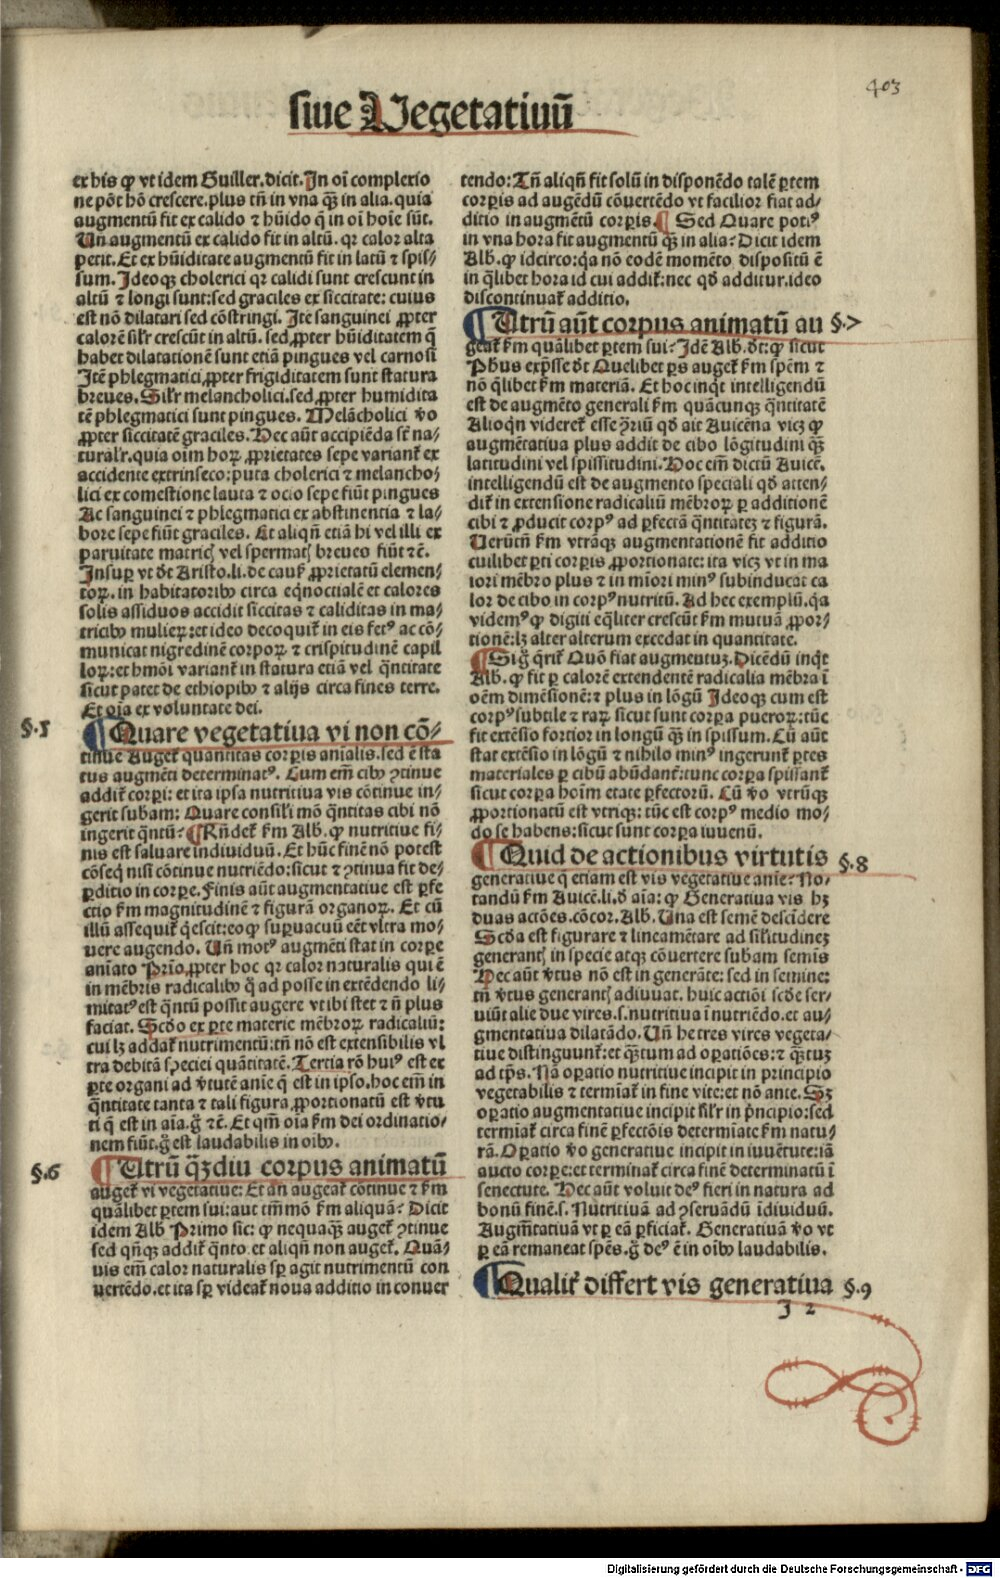 403
siue Vegetatiuū
ex his ꝙ vt idem Guiller. dicit. In oī complexio
ne pōt hō crescere. plus tn̄ in vna qȝ̄ in alia. quia
augmentū fit ex calido ⁊ hūido q̄ in oī hoīe sūt.
Un̄ augmentū ex calido fit in altū. qr calor alta
petit. Et ex hūiditate augmentū fit in latū ⁊ spis-
sum. Ideoqꝫ cholerici qr calidi sunt crescunt in
altū ⁊ longi sunt: sed graciles ex siccitate: cuius
est nō dilatari sed cōstringi. Itē sanguinei ꝓpter
calorē sil'r crescūt in altū. sed ꝓpter hūiditatem q̄
habet dilatationē sunt etiā pingues vel carnosi
Itē phlegmatici ꝓpter frigiditatem sunt statura
breues. Sil'r melancholici. sed ꝓpter humidita
tē phlegmatici sunt pingues. Melācholici v̄o
ꝓpter siccitatē graciles. Hec aūt accipiēda sūt na-
tural'r. quia oīm hoꝝ ꝓprietates sepe variant᷑ ex
accidente extrinseco: puta cholerici ⁊ melancho-
lici ex comestione lauta ⁊ ocio sepe fiūt pingues
Ac sanguinei ⁊ phlegmatici ex abstinentia ⁊ la-
bore sepe fiūt graciles. Et aliqn̄ etiā hi vel illi ex
paruitate matricꝭ vel spermatꝭ breueo fiūt ⁊c̄.
Insuꝑ vt dt̄ Aristo. li. de causꝭ ꝓprietatū elemen-
toꝝ. in habitatoribꝰ circa eqnoctialē et calores
solis assiduos accidit siccitas ⁊ caliditas in ma-
tricibꝰ mulieꝝ: et ideo decoquit᷑ in eis fetꝰ ac cō-
municat nigredinē corpoꝝ ⁊ crispitudinē capil
loꝝ: et hmōi variant᷑ in statura etiā vel q̄ntitate
sicut patet de ethiopibꝰ ⁊ alijs circa fines terre.
Et oīa ex voluntate dei.
§.5 ¶ Quare vegetatiua vi non cō-
tinue Auget᷑ quantitas corꝑis anīalis. sed ē sta
tus augmēti determinatꝰ. Cum em̄ cibꝰ ꝯtinue
addit᷑ corꝑi: et ita ipsa nutritiua vis cōtinue in-
gerit subam: Quare consil'i mō q̄ntitas cibi nō
ingerit q̄ntū? ¶ Rn̄det᷑ km̄ Alb. ꝙ nutritiue fi-
nis est saluare indiuiduū. Et hūc finē nō potest
cōseq̄ nisi cōtinue nutriēdo: sicut ⁊ ꝯtinua fit de-
ꝑditio in corꝑe. Finis aūt augmentatiue est ꝑfe
ctio km̄ magnitudinē ⁊ figurā organoꝝ. Et cū
illū assequit᷑ q̄escit: eo ꝙ suꝑuacuū eēt vltra mo-
uere augendo. Un̄ motꝰ augmēti stat in corꝑe
anīato Prīo ꝓpter hoc qr calor naturalis qui ē
in mēbris radicalibꝰ q̄ ad posse in extēdendo li-
mitatꝰ est q̄ntū possit augere vt ibi stet ⁊ n̄ plus
faciat. Scd̄o ex ꝑte materie mēbroꝝ radicaliū:
cui lꝫ addat᷑ nutrimentū: tn̄ nō est extensibilis vl
tra debitā speciei quātitatē. Tertia rō huiꝰ est ex
ꝑte organi ad v̄tutē anīe q̄ est in ipso. hoc em̄ in
q̄ntitate tanta ⁊ tali figura ꝓportionatū est v̄tu
ti q̄ est in aīa. ḡ ⁊c̄. Et qm̄ oīa km̄ dei ordinatio-
nem fiūt. ḡ est laudabilis in oībꝰ.
§.6 ¶ Utrū qȝ̄diu corpus animatū
auget᷑ vi vegetatiue: Et an augeat᷑ cōtinue ⁊ km̄
quālibet ꝑtem sui: aut tm̄mō km̄ aliquā? Dicit
idem Alb̄ Primo sic: ꝙ nequaqȝ auget᷑ ꝯtinue
sed qn̄qꝫ addit᷑ q̄nto. et aliqn̄ non auget᷑. Quā-
uis em̄ calor naturalis sꝑ agit nutrimentū con
uertēdo. et ita sꝑ videat᷑ noua additio in conuer
tendo: Tn̄ aliqn̄ fit solū in disponēdo talē ꝑtem
corꝑis ad augēdū cōuertēdo vt facilior fiat ad-
ditio in augmētū corꝑis. ¶ Sed Quare potiꝰ
in vna hora fit augmentū qȝ̄ in alia? Dicit idem
Alb. ꝙ idcirco: q̄a nō eodē momēto dispositū ē
in q̄libet hora id cui addit᷑: nec qd̄ additur. ideo
discontinuat᷑ additio.
¶ Utrū aūt corpus animatū au §.7
geat᷑ km̄ quālibet ꝑtem sui? Idē Alb. dt̄: ꝙ sicut
Phus exp̄sse dt̄ Quelibet ꝑs auget᷑ km̄ spēm ⁊
nō q̄libet km̄ materiā. Et hoc inq̄t intelligendū
est de augmēto generali km̄ quācunqꝫ q̄ntitatē
Alioqn̄ videret᷑ esse ꝯ̄riū qd̄ ait Auicēna vicꝫ ꝙ
augmētatiua plus addit de cibo lōgitudini qȝ̄
latitudini vel spissitudini. Hoc em̄ dictū Auicē.
intelligendū est de augmento speciali qd̄ atten-
dit᷑ in extensione radicaliū mēbroꝝ ꝑ additionē
cibi ⁊ ꝓducit corpꝰ ad ꝑfectā q̄ntitateꝫ ⁊ figurā.
Uerūtn̄ km̄ vtrāqꝫ augmentationē fit additio
cuilibet ꝑti corꝑis ꝓportionate: ita vicꝫ vt in ma
iori mēbro plus ⁊ in mīori minꝰ subinducat ca
lor de cibo in corpꝰ nutritū. Ad hec exemplū. q̄a
videmꝰ ꝙ digiti eq̄liter crescūt km̄ mutuā ꝓpor-
tionē: lꝫ alter alterum excedat in quantitate.
¶ Sig̃ q̄rit᷑ Quō fiat augmentuꝫ. Dicēdū inq̄t
Alb. ꝙ fit ꝑ calorē extendentē radicalia mēbra ī
oēm dimēsionē: ⁊ plus in lōgū Ideoqꝫ cum est
corpꝰ subtile ⁊ raꝝ sicut sunt corꝑa pueroꝝ: tūc
fit extēsio fortior in longū qȝ̄ in spissum. Cū aūt
stat extēsio in lōgū ⁊ nihilo minꝰ ingerunt᷑ ꝑtes
materiales ꝑ cibū abūdant᷑: tunc corꝑa spissant᷑
sicut corꝑa hoīm etate ꝑfectorū. Cū v̄o vtrūqꝫ
ꝓportionatū est vtriqꝫ: tūc est corpꝰ medio mo-
do se habens: sicut sunt corꝑa iuuenū.
¶ Quid de actionibus virtutis §.8
generatiue q̄ etiam est vis vegetatiue anīe? No-
tandū km̄ Auicē. li. d̄ aīa: ꝙ Generatiua vis hꝫ
duas actōes. cōcor. Alb. Una est semē descīdere
Scd̄a est figurare ⁊ lineamētare ad sil'itudineꝫ
generantꝭ in specie atqꝫ cōuertere subam semīs
Hec aūt v̄tus nō est in generāte: sed in semine:
tn̄ v̄tus generantꝭ adiuuat. huic actiōi scd̄e ser-
uiūt alie due vires. s. nutritiua ī nutriēdo. et au-
gmentatiua dilatādo. Un̄ he tres vires vegeta-
tiue distinguunt᷑: et qȝ̄tum ad oꝑatiōes: ⁊ qȝ̄tuꝫ
ad tp̄s. Nā oꝑatio nutritiue incipit in principio
vegetabilis ⁊ termīat᷑ in fine vite: et nō ante. Sꝫ
oꝑatio augmentatiue incipit sil'r in p̄ncipio: sed
termīat᷑ circa finē ꝑfectōis determīate km̄ natu-
rā. Oꝑatio v̄o generatiue incipit in iuuētute: iā
aucto corꝑe: et terminat᷑ circa finē determinatū ī
senectute. Hec aūt voluit deꝰ fieri in natura ad
bonū finē. s. Nutritiuā ad ꝯseruādū īdiuiduū.
Augm̄tatiuā vt ꝑ eā ꝑficiat᷑. Generatiuā v̄o vt
ꝑ eā remaneat spēs. ḡ deꝰ ē in oībꝰ laudabilis.
¶ Qualit᷑ differt vis generatiua §.9
J 2
Digitalisierung gefördert durch die Deutsche Forschungsgemeinschaft - DFG